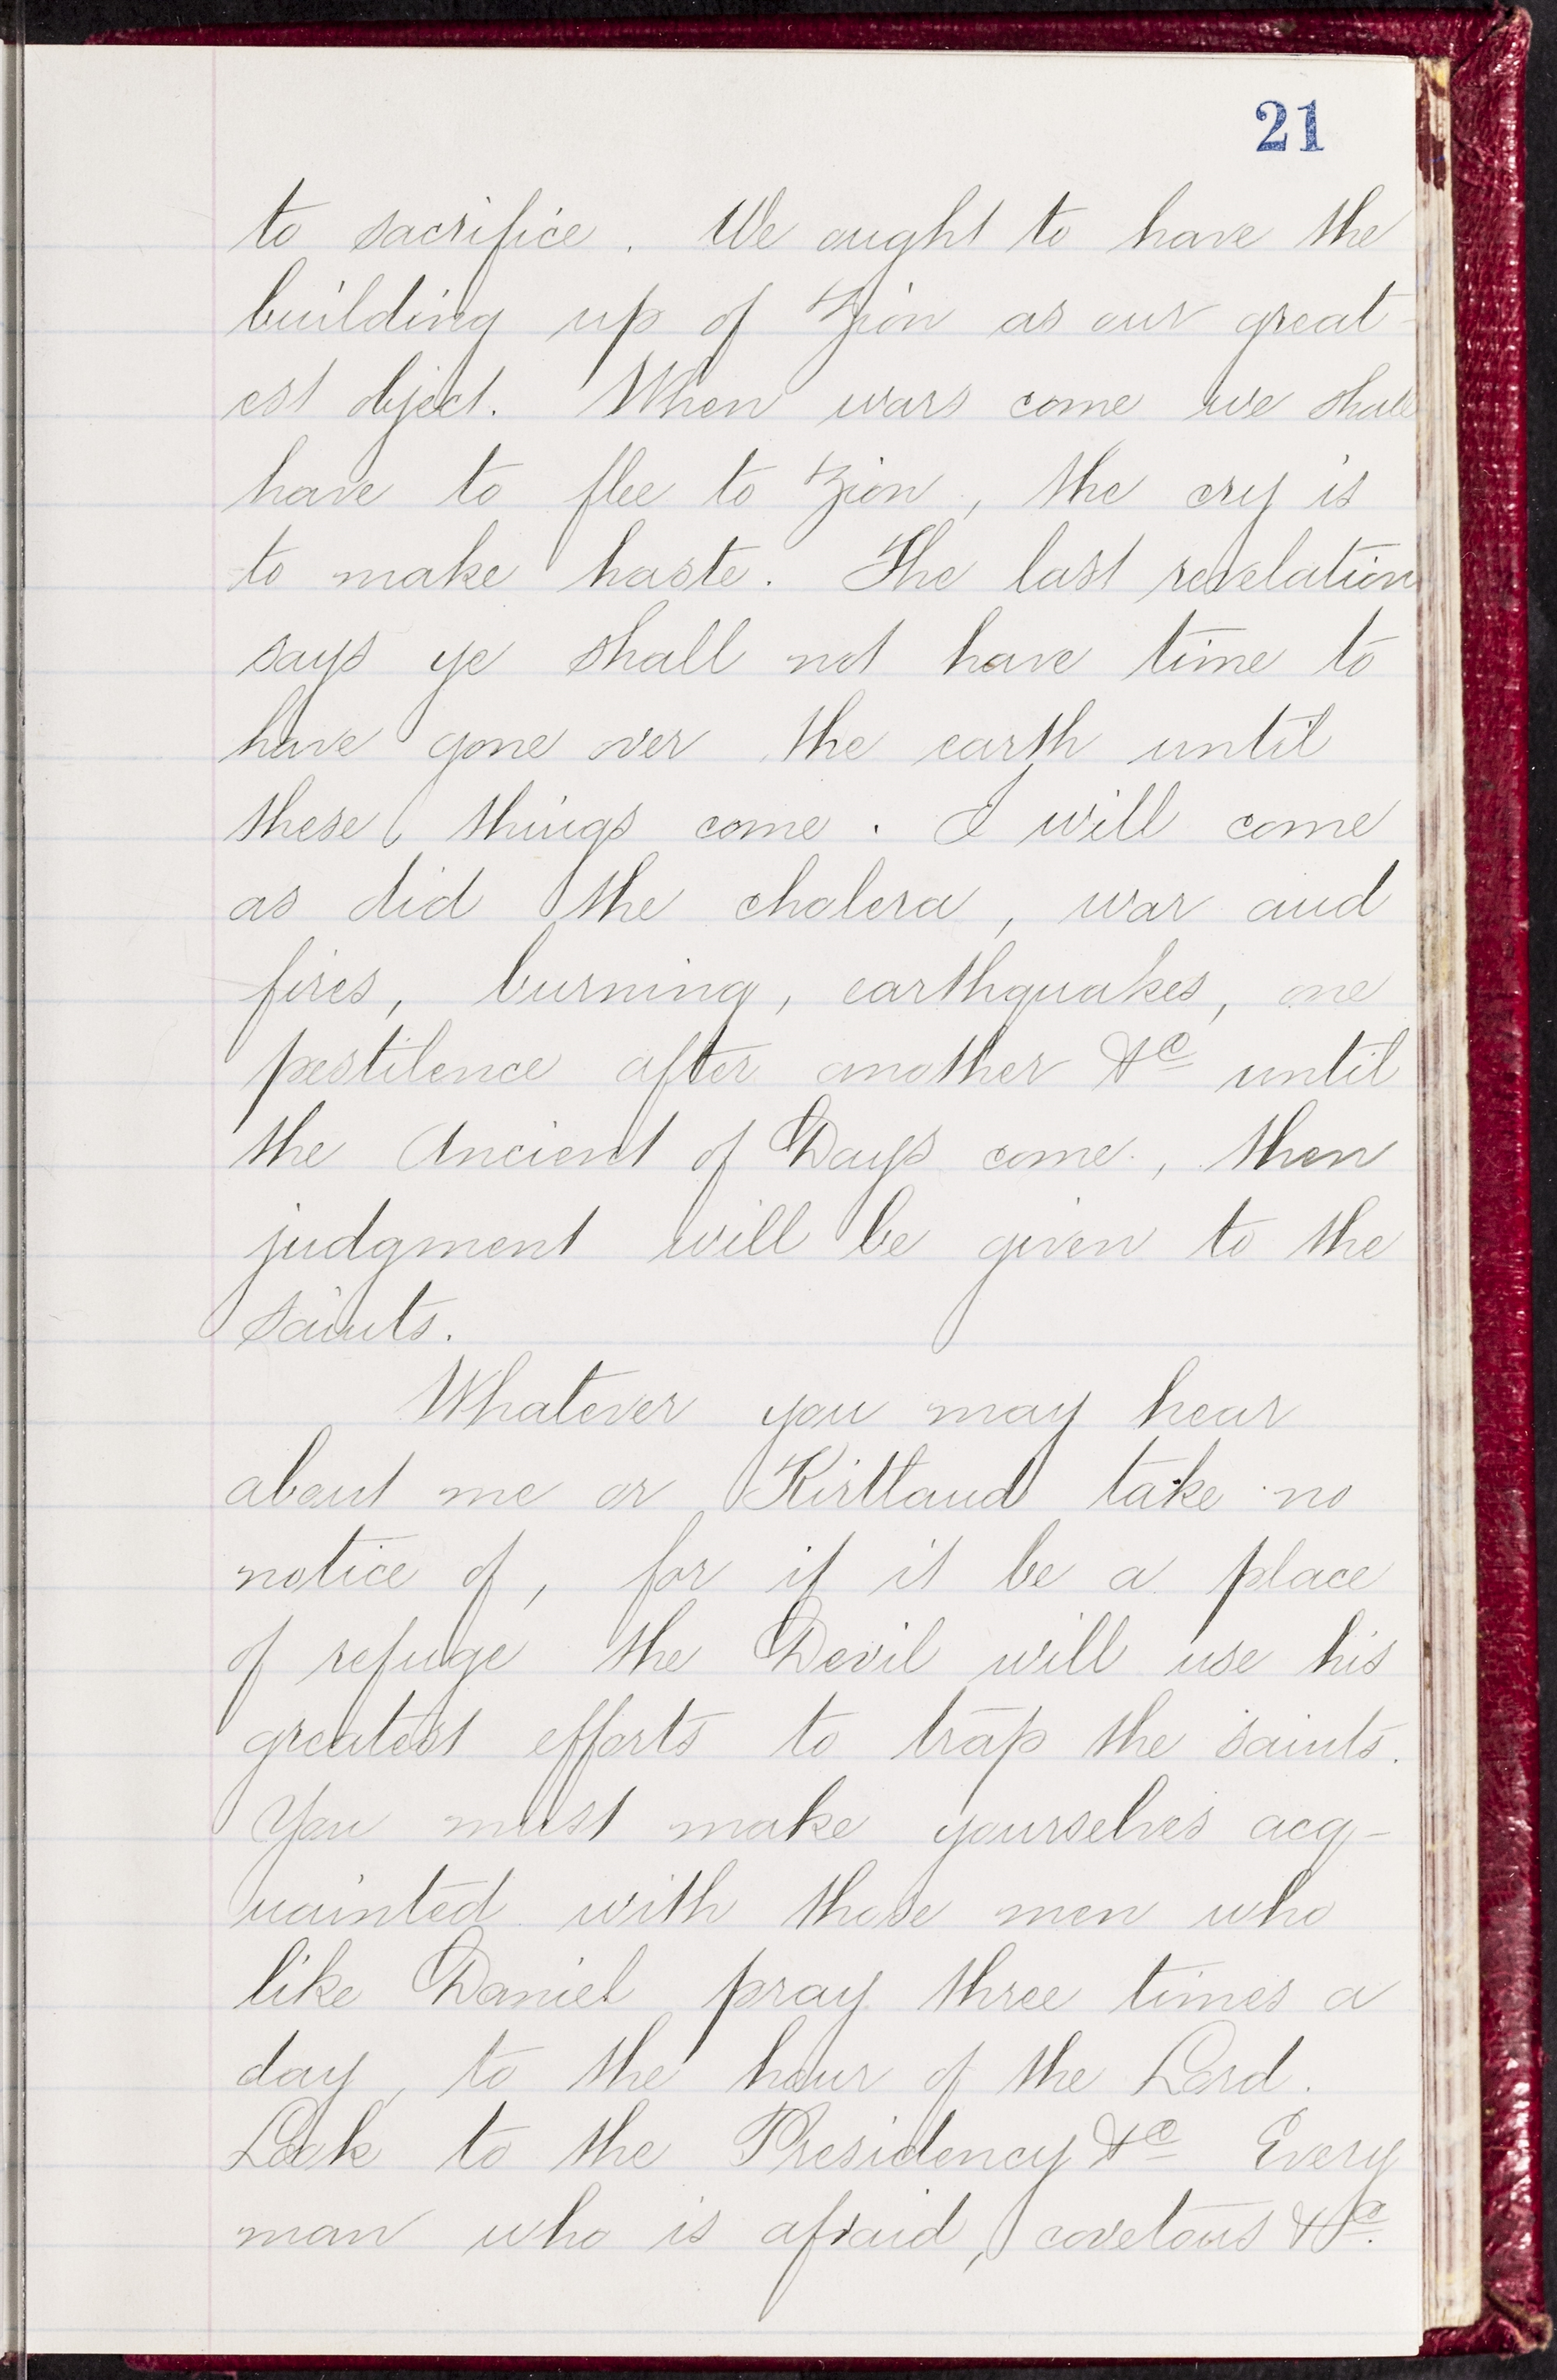 21
to sacrifice. We ought to have the
building up of Zion as our great-
est object. When wars come we shall
have to flee to Zion, the cry is
to make haste. The last revelation
says ye shall not have time to
have gone over the earth until
these things come. I will come
as did the cholera, war and
fires, burning, earthquakes, one
pestilence after another &c until
the Ancient of Days come, then
judgment will be given to the
saints.
Whatever you may hear
about me or Kirtland take no
notice of, for if it be a place
of refuge the Devil will use his
greatest efforts to trap the saints.
You must make yourselves acq-
uainted with those men who
like Daniel pray three times a
day, to the hour of the Lord.
Look to the Presidency &c Every
man who is afraid, covetous &c.